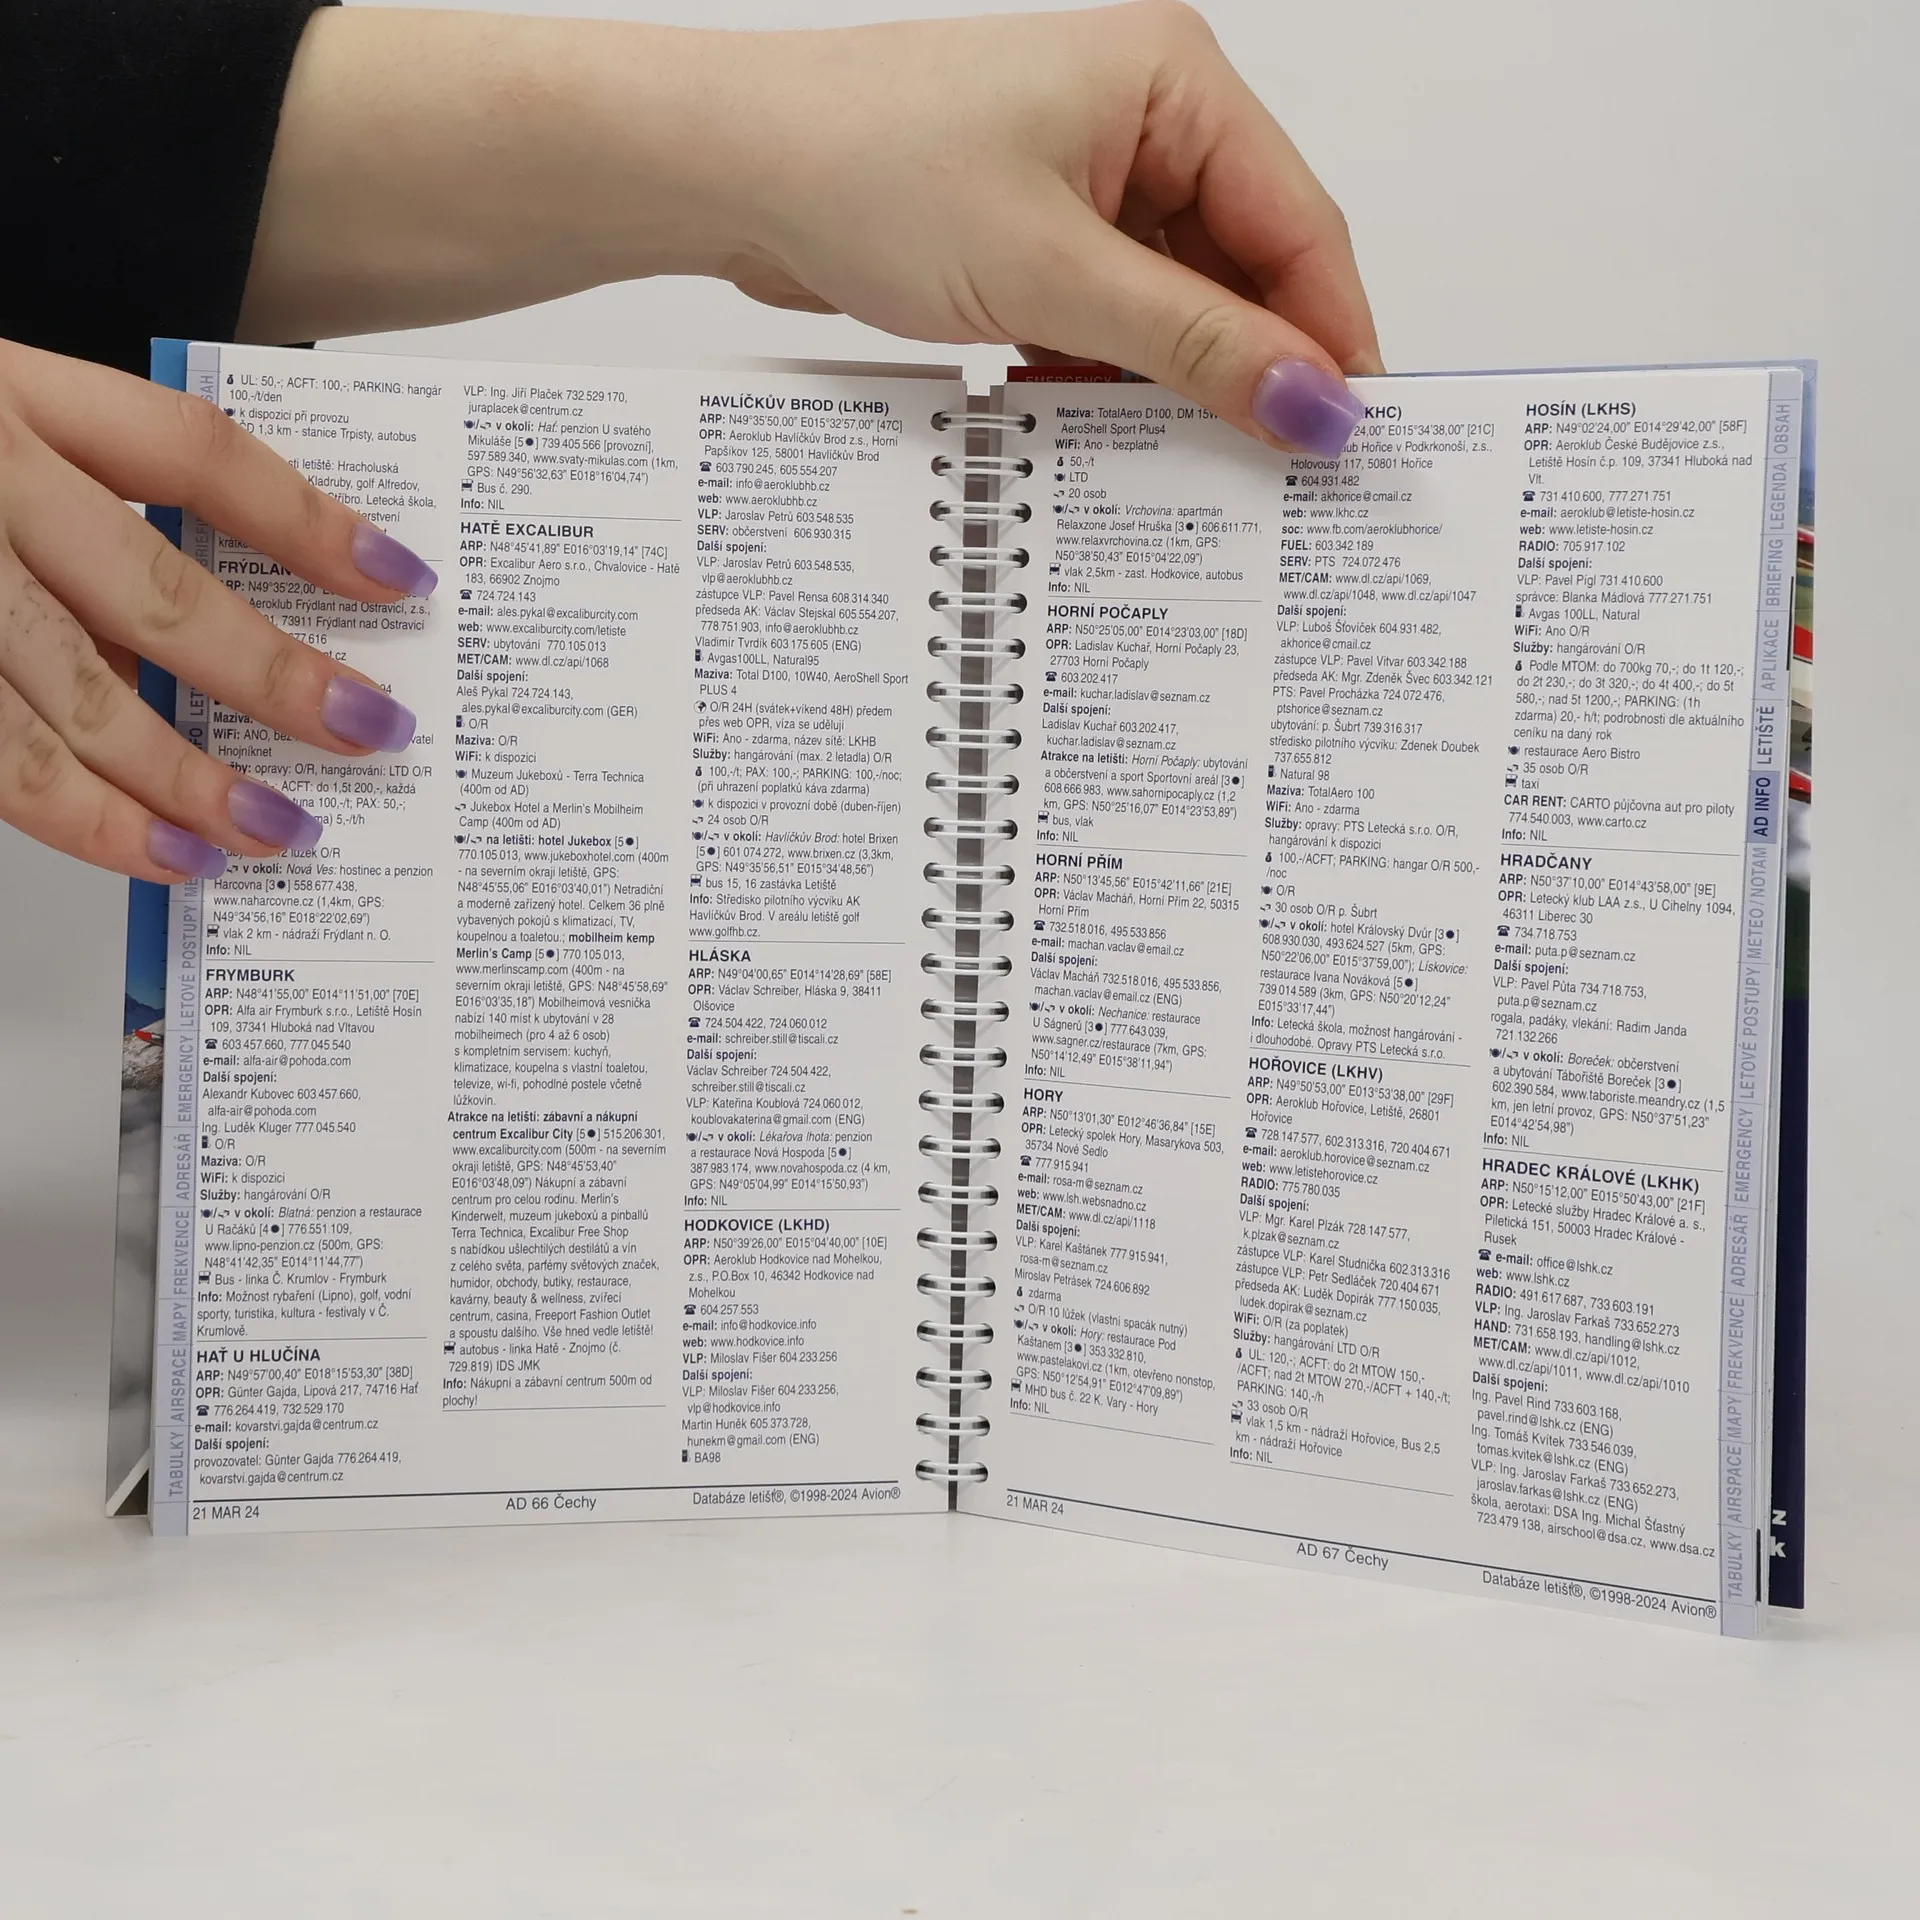 UL: 50,-; ACFT: 100,-; PARKING: hangár
100,-/t/den
k dispozici při provozu
ČD 1,3 km - stanice Trpisty, autobus
letiště: Hracholuská
Kladruby, golf Alfredov,
Stříbro. Letecká škola,
FRÝDLAN
ARP: N49°35'22,00"
Aeroklub Frýdlant nad Ostravicí, z.s.,
73911 Frýdlant nad Ostravicí
Maziva:
WiFi: ANO,
Hnojníknet
opravy: O/R, hangárování: LTD O/R
ACFT: do 1,5t 200,-, každá
100,-/t; PAX: 50,-;
5,-/t/h
12 lůžek O/R
v okolí: Nová Ves: hostinec a penzion
Harcovna [3●] 558 677 438,
www.naharcovne.cz (1,4km, GPS:
N49°34'56,16" E018°22'02,69")
vlak 2 km - nádraží Frýdlant n. O.
Info: NIL
FRYMBURK
ARP: N48°41'55,00" E014°11'51,00" [70E]
OPR: Alfa air Frymburk s.r.o., Letiště Hosín
109, 37341 Hluboká nad Vltavou
☎ 603 457 660, 777 045 540
e-mail: alfa-air@pohoda.com
Další spojení:
Alexandr Kubovec 603 457 660,
alfa-air@pohoda.com
Ing. Luděk Kluger 777 045 540
O/R
Maziva: O/R
WiFi: k dispozici
Služby: hangárování O/R
v okolí: Blatná: penzion a restaurace
U Racáků [4●] 776 551 109,
www.lipno-penzion.cz (500m, GPS:
N48°41'42,35" E014°11'44,77")
Bus - linka Č. Krumlov - Frymburk
Info: Možnost rybaření (Lipno), golf, vodní
sporty, turistika, kultura - festivaly v Č.
Krumlově.
HAŤ U HLUČÍNA
ARP: N49°57'00,40" E018°15'53,30" [38D]
OPR: Günter Gajda, Lipová 217, 74716 Hať
☎ 776 264 419, 732 529 170
e-mail: kovarstvi.gajda@centrum.cz
Další spojení:
provozovatel: Günter Gajda 776 264 419,
kovarstvi.gajda@centrum.cz
VLP: Ing. Jiří Plaček 732 529 170,
juraplacek@centrum.cz
v okolí: Hať: penzion U svatého
Mikuláše [5●] 739 405 566 [provozní],
597 589 340, www.svaty-mikulas.com (1km,
GPS: N49°56'32,63" E018°16'04,74")
Bus č. 290.
Info: NIL
HATĚ EXCALIBUR
ARP: N48°45'41,89" E016°03'19,14" [74C]
OPR: Excalibur Aero s.r.o., Chvalovice - Hatě
183, 66902 Znojmo
☎ 724 724 143
e-mail: ales.pykal@excaliburcity.com
web: www.excaliburcity.com/letiste
SERV: ubytování 770 105 013
MET/CAM: www.dl.cz/api/1068
Další spojení:
Aleš Pykal 724 724 143,
ales.pykal@excaliburcity.com (GER)
O/R
Maziva: O/R
WiFi: k dispozici
Muzeum Jukeboxů - Terra Technica
(400m od AD)
Jukebox Hotel a Merlin's Mobilheim
Camp (400m od AD)
na letišti: hotel Jukebox [5●]
770 105 013, www.jukeboxhotel.com (400m
- na severním okraji letiště, GPS:
N48°45'55,06" E016°03'40,01") Netradiční
a moderně zařízený hotel. Celkem 36 plně
vybavených pokojů s klimatizací, TV,
koupelnou a toaletou.; mobilheim kemp
Merlin's Camp [5●] 770 105 013,
www.merlinscamp.com (400m - na
severním okraji letiště, GPS: N48°45'58,69"
E016°03'35,18") Mobilheimová vesnička
nabízí 140 míst k ubytování v 28
mobilheimech (pro 4 až 6 osob)
s kompletním servisem: kuchyň,
klimatizace, koupelna s vlastní toaletou,
televize, wi-fi, pohodlné postele včetně
lůžkovin.
Atrakce na letišti: zábavní a nákupní
centrum Excalibur City [5●] 515 206 301,
www.excaliburcity.com (500m - na severním
okraji letiště, GPS: N48°45'53,40"
E016°03'48,09") Nákupní a zábavní
centrum pro celou rodinu. Merlin's
Kinderwelt, muzeum jukeboxů a pinballů
Terra Technica, Excalibur Free Shop
s nabídkou ušlechtilých destilátů a vín
z celého světa, parfémy světových značek,
humidor, obchody, butiky, restaurace,
kavárny, beauty & wellness, zvířecí
centrum, casina, Freeport Fashion Outlet
a spoustu dalšího. Vše hned vedle letiště!
autobus - linka Hatě - Znojmo (č.
729.819) IDS JMK
Info: Nákupní a zábavní centrum 500m od
plochy!
HAVLÍČKŮV BROD (LKHB)
ARP: N49°35'50,00" E015°32'57,00" [47C]
OPR: Aeroklub Havlíčkův Brod z.s., Horní
Papšíkov 125, 58001 Havlíčkův Brod
☎ 603 790 245, 605 554 207
e-mail: info@aeroklubhb.cz
web: www.aeroklubhb.cz
VLP: Jaroslav Petrů 603 548 535
SERV: občerstvení 606 930 315
Další spojení:
VLP: Jaroslav Petrů 603 548 535,
vlp@aeroklubhb.cz
zástupce VLP: Pavel Rensa 608 314 340
předseda AK: Václav Stejskal 605 554 207,
778 751 903, info@aeroklubhb.cz
Vladimír Tvrdík 603 175 605 (ENG)
Avgas100LL, Natural95
Maziva: Total D100, 10W40, AeroShell Sport
PLUS 4
O/R 24H (svátek+víkend 48H) předem
přes web OPR, víza se udělují
WiFi: Ano - zdarma, název sítě: LKHB
Služby: hangárování (max. 2 letadla) O/R
100,-/t; PAX: 100,-; PARKING: 100,-/noc;
(při uhrazení poplatků káva zdarma)
k dispozici v provozní době (duben-říjen)
24 osob O/R
v okolí: Havlíčkův Brod: hotel Brixen
[5●] 601 074 272, www.brixen.cz (3,3km,
GPS: N49°35'56,51" E015°34'48,56")
bus 15, 16 zastávka Letiště
Info: Středisko pilotního výcviku AK
Havlíčkův Brod. V areálu letiště golf
www.golfhb.cz.
HLÁSKA
ARP: N49°04'00,65" E014°14'28,69" [58E]
OPR: Václav Schreiber, Hláska 9, 38411
Olšovice
☎ 724 504 422, 724 060 012
e-mail: schreiber.still@tiscali.cz
Další spojení:
Václav Schreiber 724 504 422,
schreiber.still@tiscali.cz
VLP: Kateřina Koublová 724 060 012,
koublovakaterina@gmail.com (ENG)
v okolí: Lékařova lhota: penzion
a restaurace Nová Hospoda [5●]
387 983 174, www.novahospoda.cz (4 km,
GPS: N49°05'04,99" E014°15'50,93")
Info: NIL
HODKOVICE (LKHD)
ARP: N50°39'26,00" E015°04'40,00" [10E]
OPR: Aeroklub Hodkovice nad Mohelkou,
z.s., P.O.Box 10, 46342 Hodkovice nad
Mohelkou
☎ 604 257 553
e-mail: info@hodkovice.info
web: www.hodkovice.info
VLP: Miloslav Fišer 604 233 256
Další spojení:
VLP: Miloslav Fišer 604 233 256,
vlp@hodkovice.info
Martin Huněk 605 373 728,
hunekm@gmail.com (ENG)
BA98
21 MAR 24
AD 66 Čechy
Databáze letišť®, ©1998-2024 Avion®
TABULKY AIRSPACE MAPY FREKVENCE ADRESÁŘ EMERGENCY LETOVÉ POSTUPY
EMERGENCY
Maziva: TotalAero D100, DM 15W
AeroShell Sport Plus4
WiFi: Ano - bezplatně
50,-/t
LTD
20 osob
v okolí: Vrchovina: apartmán
Relaxzone Josef Hruška [3●] 606 611 771,
www.relaxvrchovina.cz (1km, GPS:
N50°38'50,43" E015°04'22,09")
vlak 2,5km - zast. Hodkovice, autobus
Info: NIL
HORNÍ POČAPLY
ARP: N50°25'05,00" E014°23'03,00" [18D]
OPR: Ladislav Kuchař, Horní Počaply 23,
27703 Horní Počaply
☎ 603 202 417
e-mail: kuchar.ladislav@seznam.cz
Další spojení:
Ladislav Kuchař 603 202 417,
kuchar.ladislav@seznam.cz
Atrakce na letišti: Horní Počaply: ubytování
a občerstvení a sport Sportovní areál [3●]
608 666 983, www.sahornipocaply.cz (1,2
km, GPS: N50°25'16,07" E014°23'53,89")
bus, vlak
Info: NIL
HORNÍ PŘÍM
ARP: N50°13'45,56" E015°42'11,66" [21E]
OPR: Václav Macháň, Horní Přím 22, 50315
Horní Přím
☎ 732 518 016, 495 533 856
e-mail: machan.vaclav@email.cz
Další spojení:
Václav Macháň 732 518 016, 495 533 856,
machan.vaclav@email.cz (ENG)
v okolí: Nechanice: restaurace
U Ságnerů [3●] 777 643 039,
www.sagner.cz/restaurace (7km, GPS:
N50°14'12,49" E015°38'11,94")
Info: NIL
HORY
ARP: N50°13'01,30" E012°46'36,84" [15E]
OPR: Letecký spolek Hory, Masarykova 503,
35734 Nové Sedlo
☎ 777 915 941
e-mail: rosa-m@seznam.cz
web: www.lsh.websnadno.cz
MET/CAM: www.dl.cz/api/1118
Další spojení:
VLP: Karel Kaštánek 777 915 941,
rosa-m@seznam.cz
Miroslav Petrásek 724 606 892
zdarma
O/R 10 lůžek (vlastní spacák nutný)
v okolí: Hory: restaurace Pod
Kaštanem [3●] 353 332 810,
www.pastelakovi.cz (1km, otevřeno nonstop,
GPS: N50°12'54,91" E012°47'09,89")
MHD bus č. 22 K. Vary - Hory
Info: NIL
KHC)
24,00" E015°34'38,00" [21C]
ub Hořice v Podkrkonoší, z.s.,
Holovousy 117, 50801 Hořice
☎ 604 931 482
e-mail: akhorice@cmail.cz
web: www.lkhc.cz
soc: www.fb.com/aeroklubhorice/
FUEL: 603 342 189
SERV: PTS 724 072 476
MET/CAM: www.dl.cz/api/1069,
www.dl.cz/api/1048, www.dl.cz/api/1047
Další spojení:
VLP: Luboš Šťovíček 604 931 482,
akhorice@cmail.cz
zástupce VLP: Pavel Vitvar 603 342 188
předseda AK: Mgr. Zdeněk Švec 603 342 121
PTS: Pavel Procházka 724 072 476,
ptshorice@seznam.cz
ubytování: p. Šubrt 739 316 317
středisko pilotního výcviku: Zdenek Doubek
737 655 812
Natural 98
Maziva: TotalAero 100
WiFi: Ano - zdarma
Služby: opravy: PTS Letecká s.r.o. O/R,
hangárování k dispozici
100,-/ACFT; PARKING: hangar O/R 500,-
/noc
O/R
30 osob O/R p. Šubrt
v okolí: hotel Královský Dvůr [3●]
608 930 030, 493 624 527 (5km, GPS:
N50°22'06,00" E015°37'59,00"); Lískovice:
restaurace Ivana Nováková [5●]
739 014 589 (3km, GPS: N50°20'12,24"
E015°33'17,44")
Info: Letecká škola, možnost hangárování -
i dlouhodobé. Opravy PTS Letecká s.r.o.
HOŘOVICE (LKHV)
ARP: N49°50'53,00" E013°53'38,00" [29F]
OPR: Aeroklub Hořovice, Letiště, 26801
Hořovice
☎ 728 147 577, 602 313 316, 720 404 671
e-mail: aeroklub.horovice@seznam.cz
web: www.letistehorovice.cz
RADIO: 775 780 035
Další spojení:
VLP: Mgr. Karel Plzák 728 147 577,
k.plzak@seznam.cz
zástupce VLP: Karel Studnička 602 313 316
zástupce VLP: Petr Sedláček 720 404 671
předseda AK: Luděk Dopirák 777 150 035,
ludek.dopirak@seznam.cz
WiFi: O/R (za poplatek)
Služby: hangárování LTD O/R
UL: 120,-; ACFT: do 2t MTOW 150,-
/ACFT; nad 2t MTOW 270,-/ACFT + 140,-/t;
PARKING: 140,-/h
33 osob O/R
vlak 1,5 km - nádraží Hořovice, Bus 2,5
km - nádraží Hořovice
Info: NIL
HOSÍN (LKHS)
ARP: N49°02'24,00" E014°29'42,00" [58F]
OPR: Aeroklub České Budějovice z.s.,
Letiště Hosín č.p. 109, 37341 Hluboká nad
Vlt.
☎ 731 410 600, 777 271 751
e-mail: aeroklub@letiste-hosin.cz
web: www.letiste-hosin.cz
RADIO: 705 917 102
Další spojení:
VLP: Pavel Pígl 731 410 600
správce: Blanka Mádlová 777 271 751
Avgas 100LL, Natural
WiFi: Ano O/R
Služby: hangárování O/R
Podle MTOM: do 700kg 70,-; do 1t 120,-;
do 2t 230,-; do 3t 320,-; do 4t 400,-; do 5t
580,-; nad 5t 1200,-; PARKING: (1h
zdarma) 20,- h/t; podrobnosti dle aktuálního
ceníku na daný rok
restaurace Aero Bistro
35 osob O/R
taxi
CAR RENT: CARTO půjčovna aut pro piloty
774 540 003, www.carto.cz
Info: NIL
HRADČANY
ARP: N50°37'10,00" E014°43'58,00" [9E]
OPR: Letecký klub LAA z.s., U Cihelny 1094,
46311 Liberec 30
☎ 734 718 753
e-mail: puta.p@seznam.cz
Další spojení:
VLP: Pavel Půta 734 718 753,
puta.p@seznam.cz
rogala, padáky, vlekání: Radim Janda
721 132 266
v okolí: Boreček: občerstvení
a ubytování Tábořiště Boreček [3●]
602 390 584, www.taboriste.meandry.cz (1,5
km, jen letní provoz, GPS: N50°37'51,23"
E014°42'54,98")
Info: NIL
HRADEC KRÁLOVÉ (LKHK)
ARP: N50°15'12,00" E015°50'43,00" [21F]
OPR: Letecké služby Hradec Králové a. s.,
Piletická 151, 50003 Hradec Králové -
Rusek
☎ e-mail: office@lshk.cz
web: www.lshk.cz
RADIO: 491 617 687, 733 603 191
VLP: Ing. Jaroslav Farkaš 733 652 273
HAND: 731 658 193, handling@lshk.cz
MET/CAM: www.dl.cz/api/1012,
www.dl.cz/api/1011, www.dl.cz/api/1010
Další spojení:
Ing. Pavel Rind 733 603 168,
pavel.rind@lshk.cz (ENG)
Ing. Tomáš Kvítek 733 546 039,
tomas.kvitek@lshk.cz (ENG)
VLP: Ing. Jaroslav Farkaš 733 652 273,
jaroslav.farkas@lshk.cz (ENG)
škola, aerotaxi: DSA Ing. Michal Šťastný
723 479 138, airschool@dsa.cz, www.dsa.cz
21 MAR 24
AD 67 Čechy
Databáze letišť®, ©1998-2024 Avion®
TABULKY AIRSPACE MAPY FREKVENCE ADRESÁŘ EMERGENCY LETOVÉ POSTUPY METEO/NOTAM AD INFO LETIŠTĚ APLIKACE BRIEFING LEGENDA OBSAH
z
k